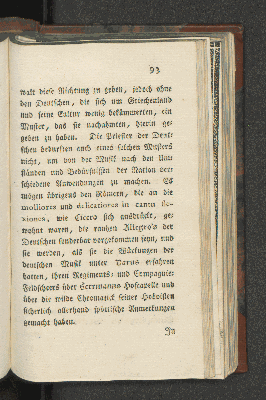 93
walt diese Richtung zu geben, jedoch ohne
den Deutschen, die sich um Griechenland
und seine Cultur wenig bekümmerten, ein
Muster, das sie nachahmten, hierin ge-
geben zu haben. Die Priester der Deut-
schen bedurften auch eines solchen Musters
nicht, um von der Musik nach den Um-
ständen und Bedürfnissen der Nation ver-
schiedene Anwendungen zu machen. Es
mögen übrigens den Römern, die an die
molliores und delicatiores in cantu fle-
xiones, wie Cicero sich ausdrückt, ge-
wöhnt waren, die rauhen Allegro's der
Deutschen sonderbar vorgekommen seyn, und
sie werden, als sie die Wirkungen der
deutschen Musik unter Varus erfahren
hatten, ihren Regiments- und Compagnie-
Feldscheers über Herrmanns Hofcapelle und
über die wilde Chromatick seiner Hoboisten
sicherlich allerhand spöttische Anmerkungen
gemacht haben.
In